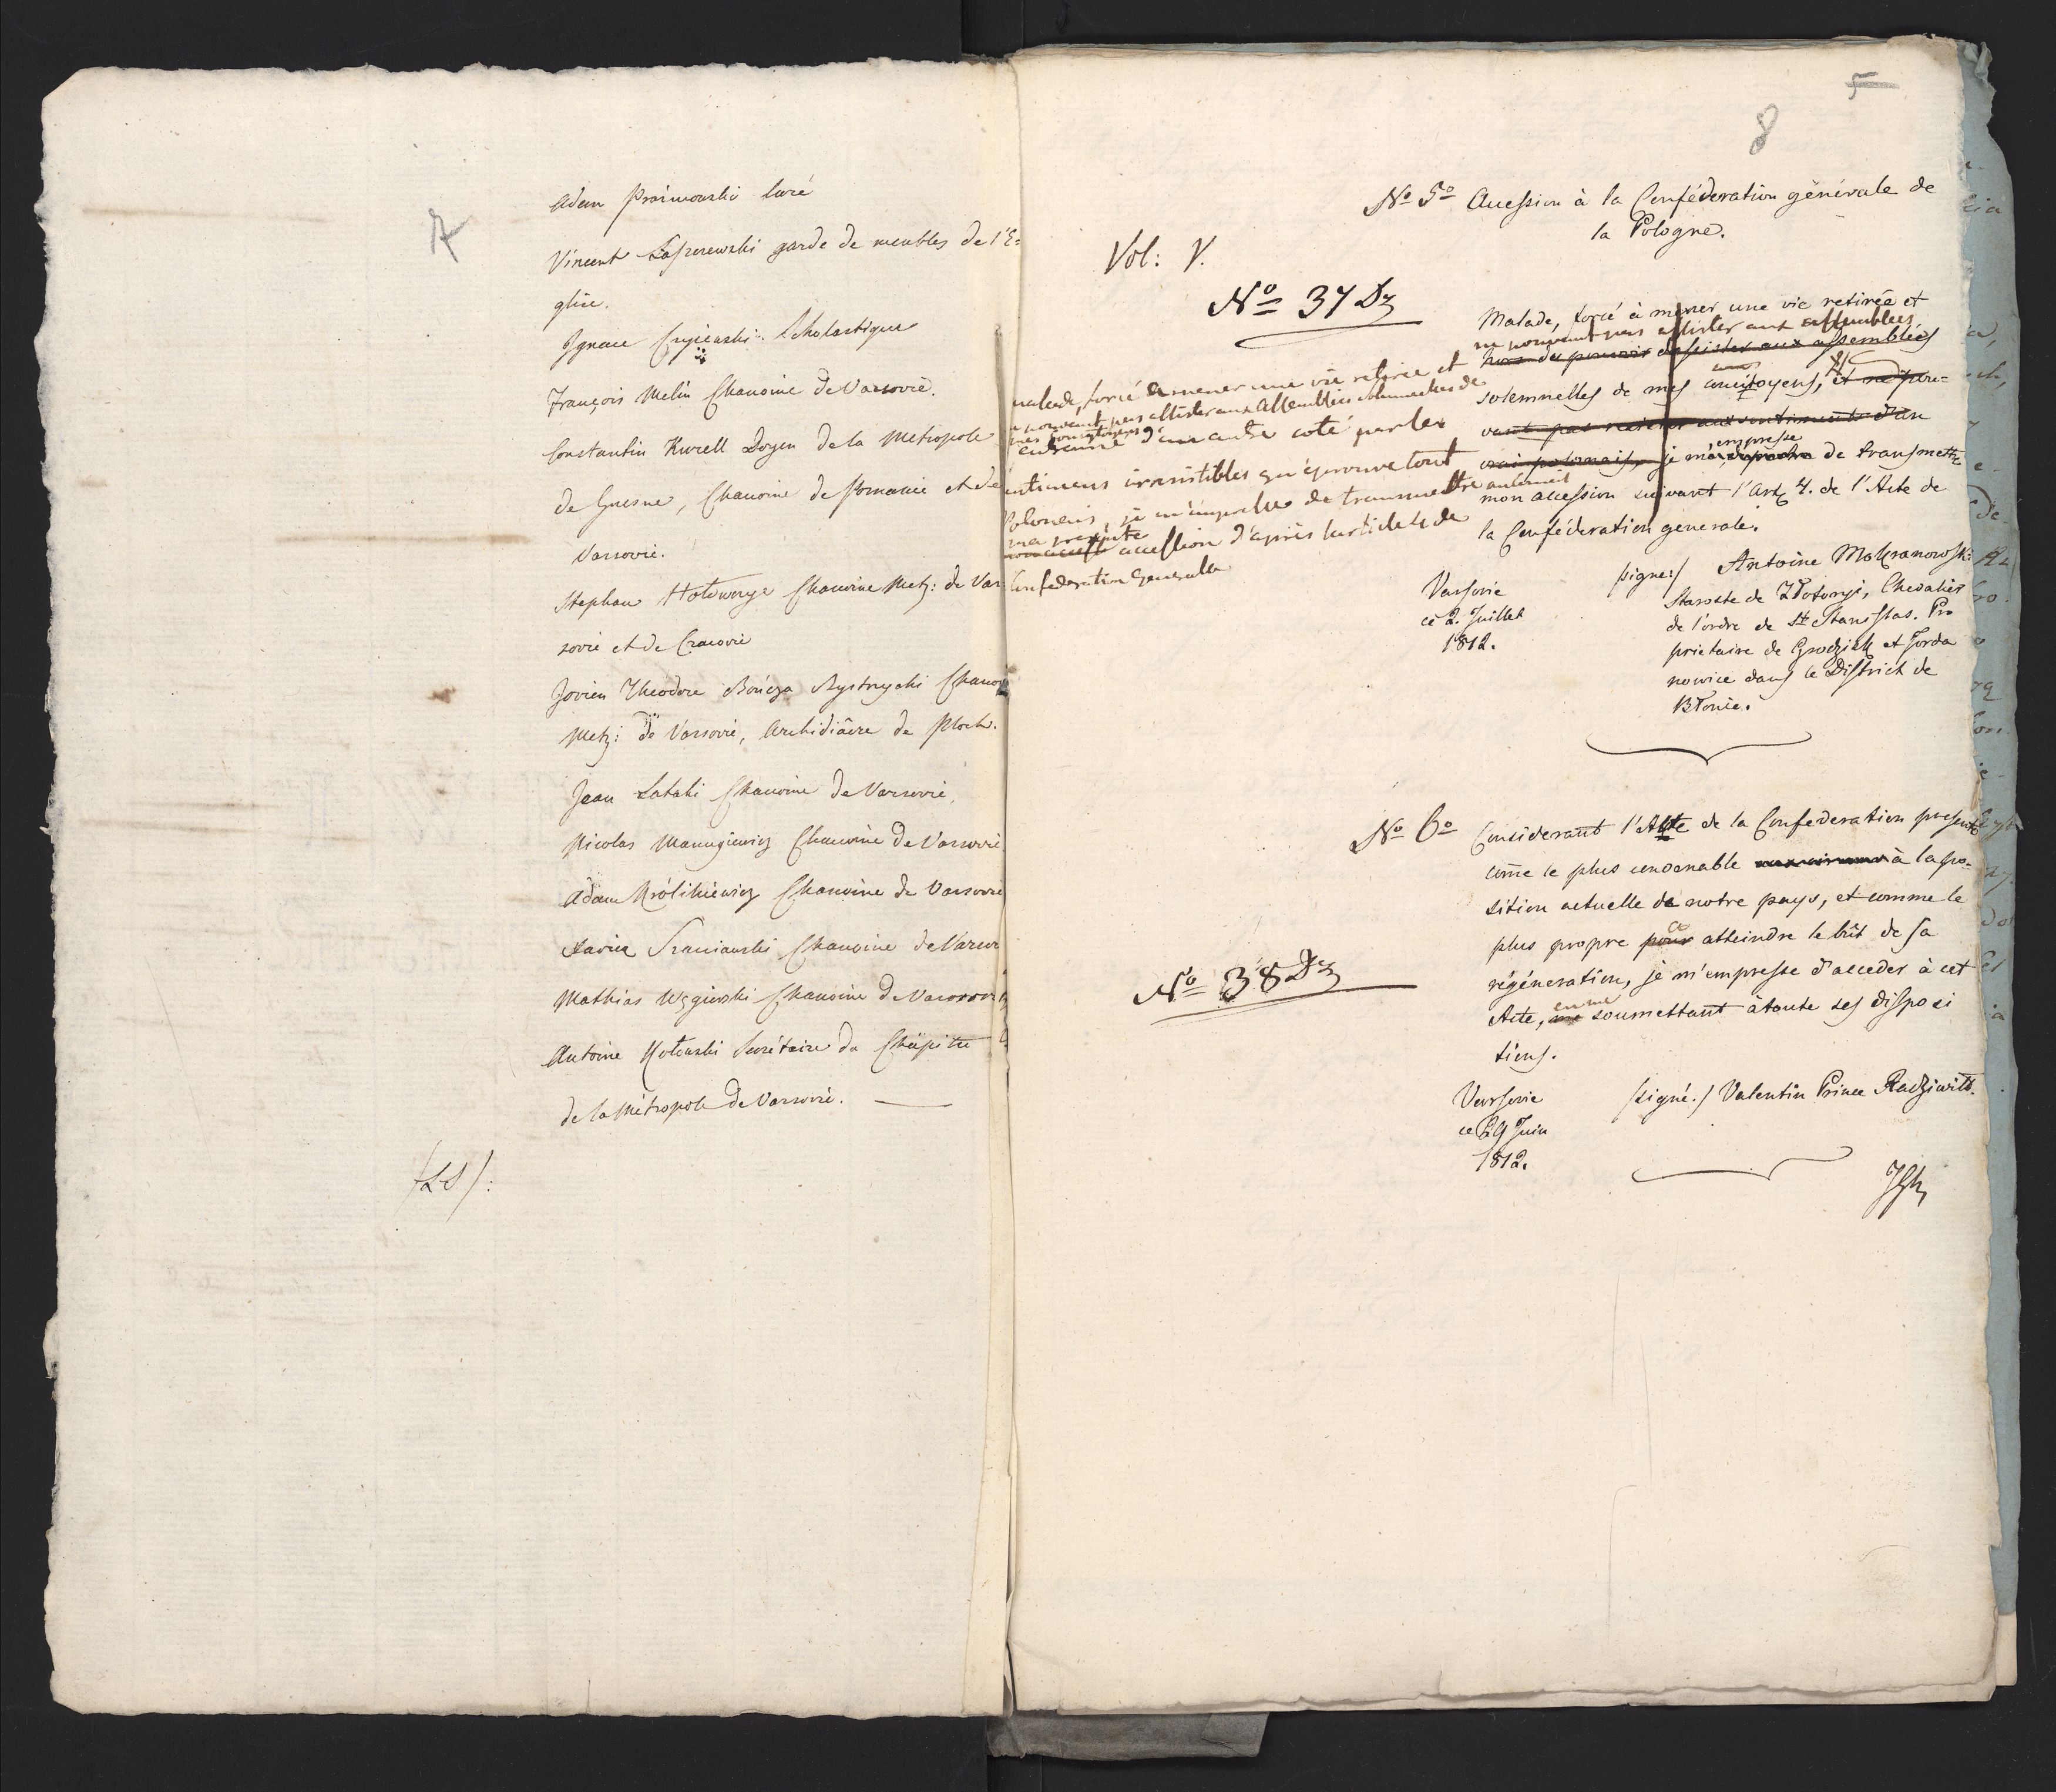 7
Adam Prażmowski Curé
Vincent garde de meubles de l'E=
glise.
Ignace Scholastique
François Melin Chanoine de Varsovie.
Constantin Kurell Doyen de la Metropole
de Gnesne, Chanoine de Posnanie et de
Varsovie.
Stephan Hołowczyc Chanoine Metr: de Var
sovie et de Cracovie
Jovien Théodore Bończa Bystrzycki Chanoi
Metr: de Varsovie, Archidiacre de Plock.
Jean Chanoine de Varsovie,
Nicolas Manugiewicz Chanoine de Varsovie
Adam Królikiewicz Chanoine de Varsovie
Xavier Szaniawski Chanoine de Varsov
Mathias Chanoine de Varsovie
Antoine Kotowski Secrétaire du Chapitre
de la Métropole de Varsovie.
/LS/:
5
8
No 5o Accession à la Conféderation générale de
la Pologne.
Vol: V.
No 37 Dz
Malade, forcé à mener une vie retirée et
ne pouvant pas assister aux assemblées
hors de pouvoir d'assister aux assemblées
solemnelles de mes concitoyens, et ne pou=
vant pas resister aux sentiments d'un
vrai polonais, je m'empresse de transmettre
mon accession suivant l'Art 4. de l'Acte de
la Conféderation generale.
malade, forcé a mener une vie retirée et
ne pouvant pas assister aux Assemblées solemnelles de
mes concitoyens
entrainé d'un autre coté par les
sentimens irresistibles qu'éprouve tout
Polonais, je m'empresse de transmettre
ma presente
accession d'après l'article 4 de
Confederation Generale
Varsovie
ce 2. Juillet
1812.
/signé:/ Antoine Mokranowski
Staroste de Chevalier
de l'ordre de St Stanislas. Pro
prietaire de Grodzisk et Jorda
nowice dans le District de
Błonie.
No 6o Considerant l'Acte de la Confederation presente
come le plus convenable à la po=
sition actuelle de notre pays, et comme le
plus propre pour atteindre le bût de sa
régéneration, je m'empresse d'acceder à cet
Acte, en me soumettant à toute ses disposi
tions.
No 38 Dz
Varsovie
ce 29 Juin
1812.
/signé./ Valentin Prince Radziwiłł.